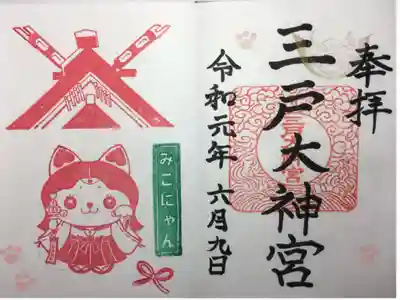 奉拝
三戸大神宮
令和元年 六月九日
みこにゃん